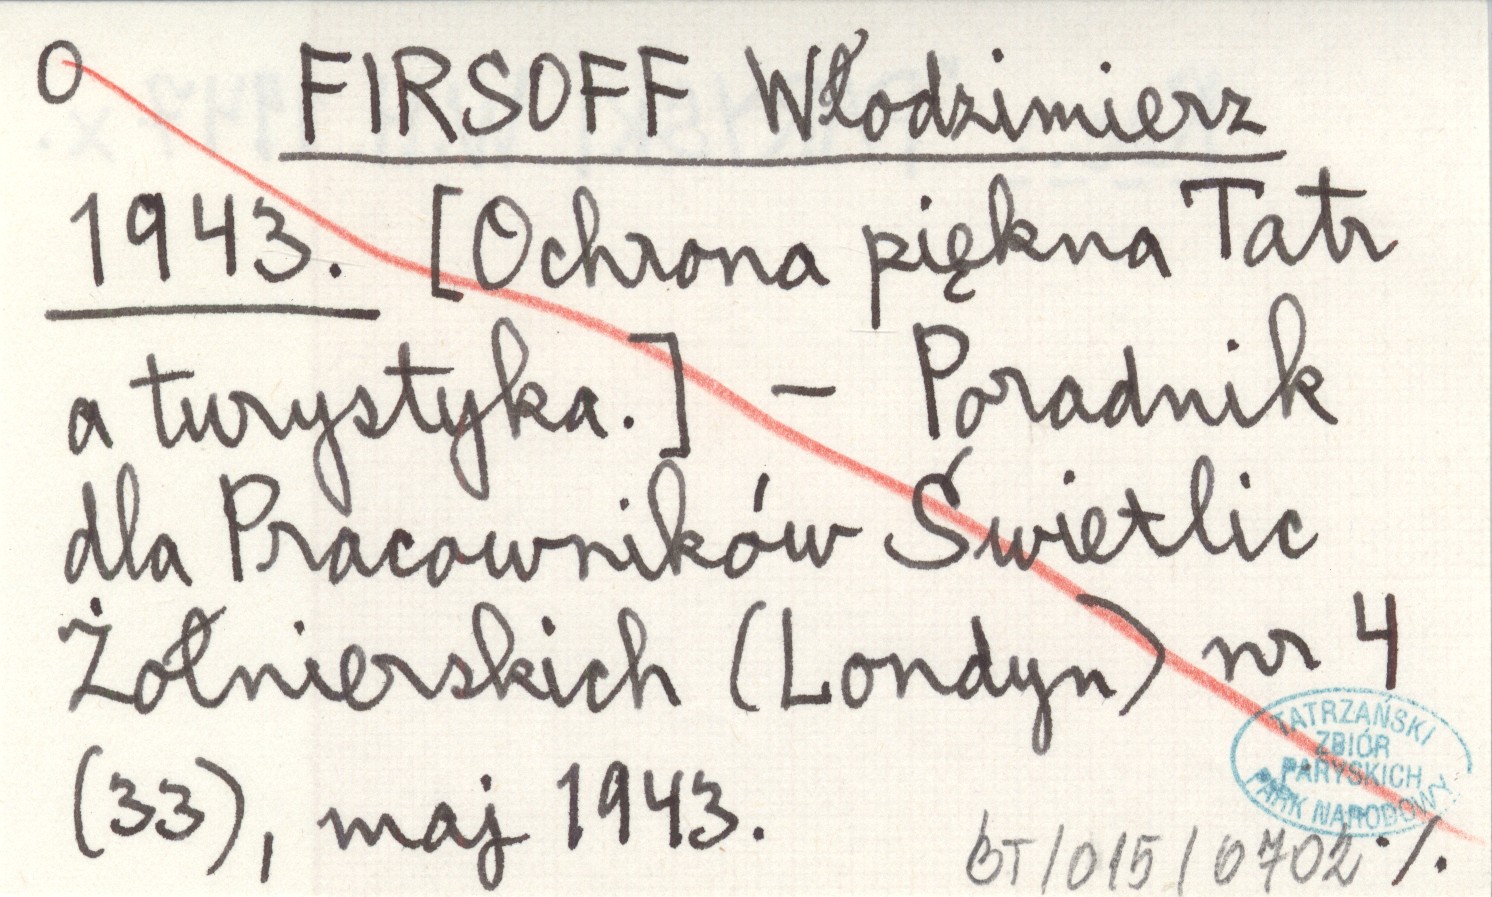 O FIRSOFF Włodzimierz
1943. [Ochrona piękna Tatr
a turystyka.] – Poradnik
dla Pracowników Świetlic
Żołnierskich (Londyn) nr 4
(33), maj 1943.
TATRZAŃSKI
ZBIÓR
PARYSKICH
PARK NARODOWY
BT/015/0702 ·/.